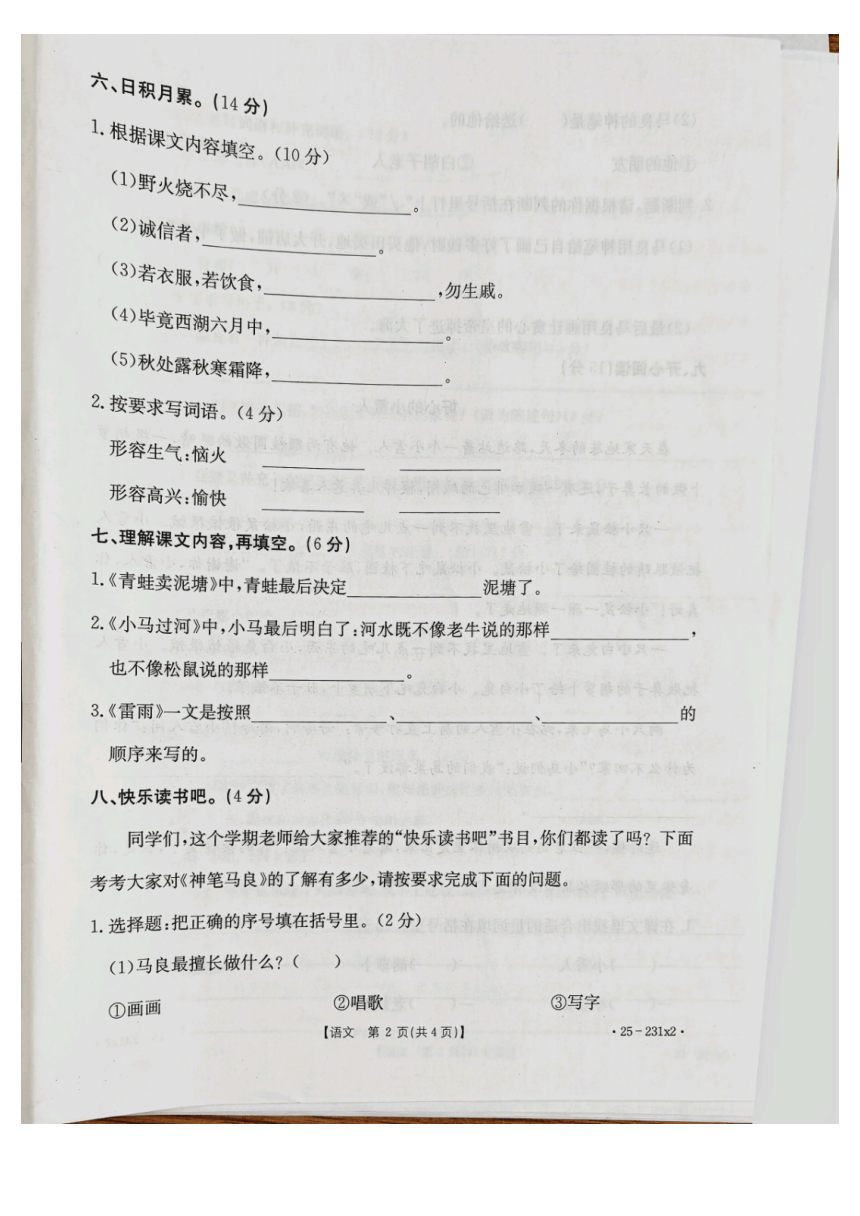 六、日积月累。(14分)
1.根据课文内容填空。(10分)
(1)野火烧不尽,。
(2)诚信者,。
(3)若衣服,若饮食,,勿生戚。
(4)毕竟西湖六月中,。
(5)秋处露秋寒霜降,。
2.按要求写词语。(4分)
形容生气:恼火
形容高兴:愉快
七、理解课文内容,再填空。(6分)
1.《青蛙卖泥塘》中,青蛙最后决定泥塘了。
2.《小马过河》中,小马最后明白了:河水既不像老牛说的那样,
也不像松鼠说的那样。
3.《雷雨》一文是按照、、的
顺序来写的。
八、快乐读书吧。(4分)
同学们,这个学期老师给大家推荐的“快乐读书吧”书目,你们都读了吗？下面
考考大家对《神笔马良》的了解有多少,请按要求完成下面的问题。
1.选择题:把正确的序号填在括号里。(2分)
(1)马良最擅长做什么？( )
①画画 ②唱歌 ③写字
【语文 第2页(共4页)】 ·25-231x2·